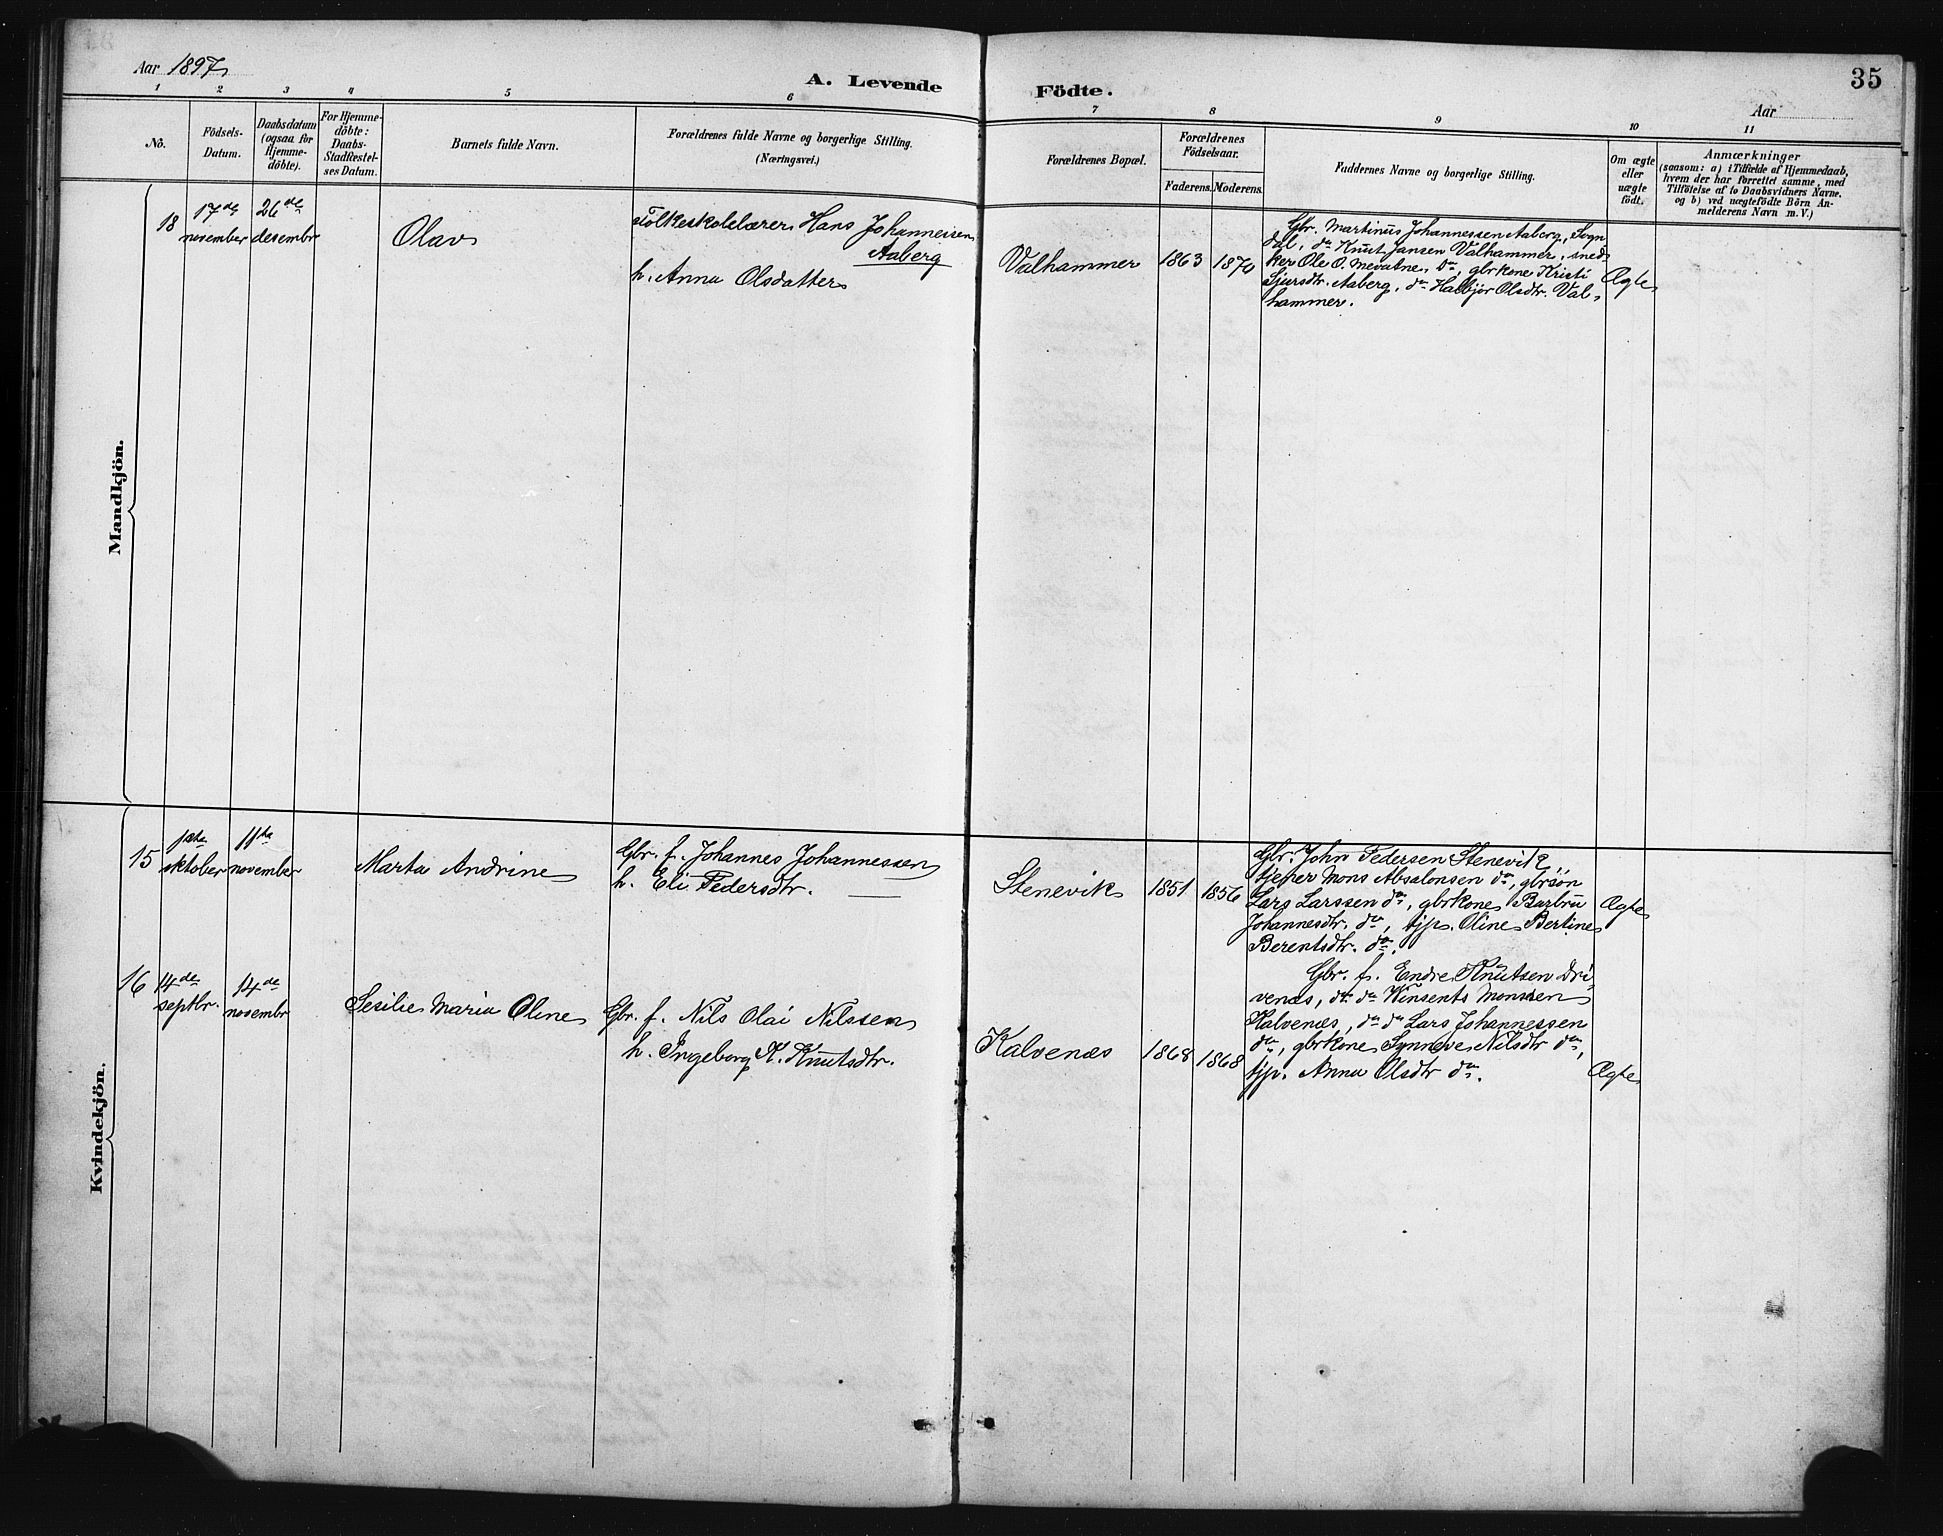 Aar 1897
A. Levende
Födte.
35
Aar
1 2 3 4 5 6 7 8 9 10 11
No.
Födsels-
Datum.
Daabsdatum
(ogsaa for
Hjemme-
döbte).
For Hjemme-
döbte:
Daabs-
Stadfæstel-
ses Datum.
Barnets fulde Navn.
Forældrenes fulde Navne og borgerlige Stilling.
(Næringsvei.)
Forældrenes Bopæl.
Forældrenes
Födselsaar.
Faderens. Moderens.
Faddernes Navne og borgerlige Stilling.
Om ægte
eller
uægte
födt.
Anmærkninger
(saasom: a) i Tilfælde af Hjemmedaab,
hvem der har forrettet samme, med
Tilföielse af to Daabsvidners Navne.
og b) ved uægtefödte Börn An-
melderens Navn m. V.)
Mandkjön.
18
17de
november
26de
desembr
Olav
Folkeskolelærer Hans Johannessen
Aaberg
h. Anna Olsdatter
Valhammer
1863
1870
Gbr. Martinus Johannessen Aaberg, Sogn
dal, do Knut Jansen Valhammer, sned
ker Ole O. Mevatne, do, gbrkone Kristi
Sjursdtr. Aaberg, do Halbjör Olsdtr. Val
hammer.
Ægte
Kvindekjön.
15
oktober
11te
november
Marta Andrine
Gbr. f. Johannes Johannessen
h. Eli Pedersdtr.
Stenevik
1851
1856
Gbr. John Pedersen Stenevik,
tjener Mons Absalonsen do, gbrsön
Lars Larssen do, gbrkone Barbru
Johannesdtr. do, tjp. Oline Bertine
Berentsdtr. do.
Ægte
16
14de
septbr.
14de
novembr
Sesilie Maria Oline
Gbr. f. Nils Olai Nilssen
h. Ingeborg K. Knutsdtr.
Kalvenæs
1868
1868
Gbr. f. Endre Knutsen Dri
venæs, do do Winsents Monsen
Kalvenæs, do do Lars Johannessen
do, gbrkone Synneve Nilsdtr do,
tjp. Anna Olsdtr do.
Ægte